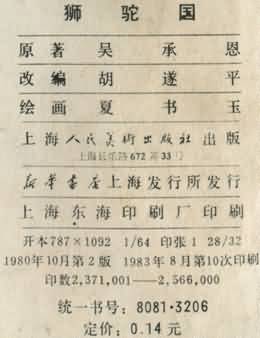 狮驼国
原著 吴承恩
改编 胡遂平
绘画 夏书玉
上海人民美术出版社出版
上海长乐路672弄33号
新华书店上海发行所发行
上海东海印刷厂印刷
开本787×1092 1/64 印张1 28/32
1980年10月第2版 1983年8月第10次印刷
印数2,371,001——2,566,000
统一书号：8081·3206
定价：0.14元